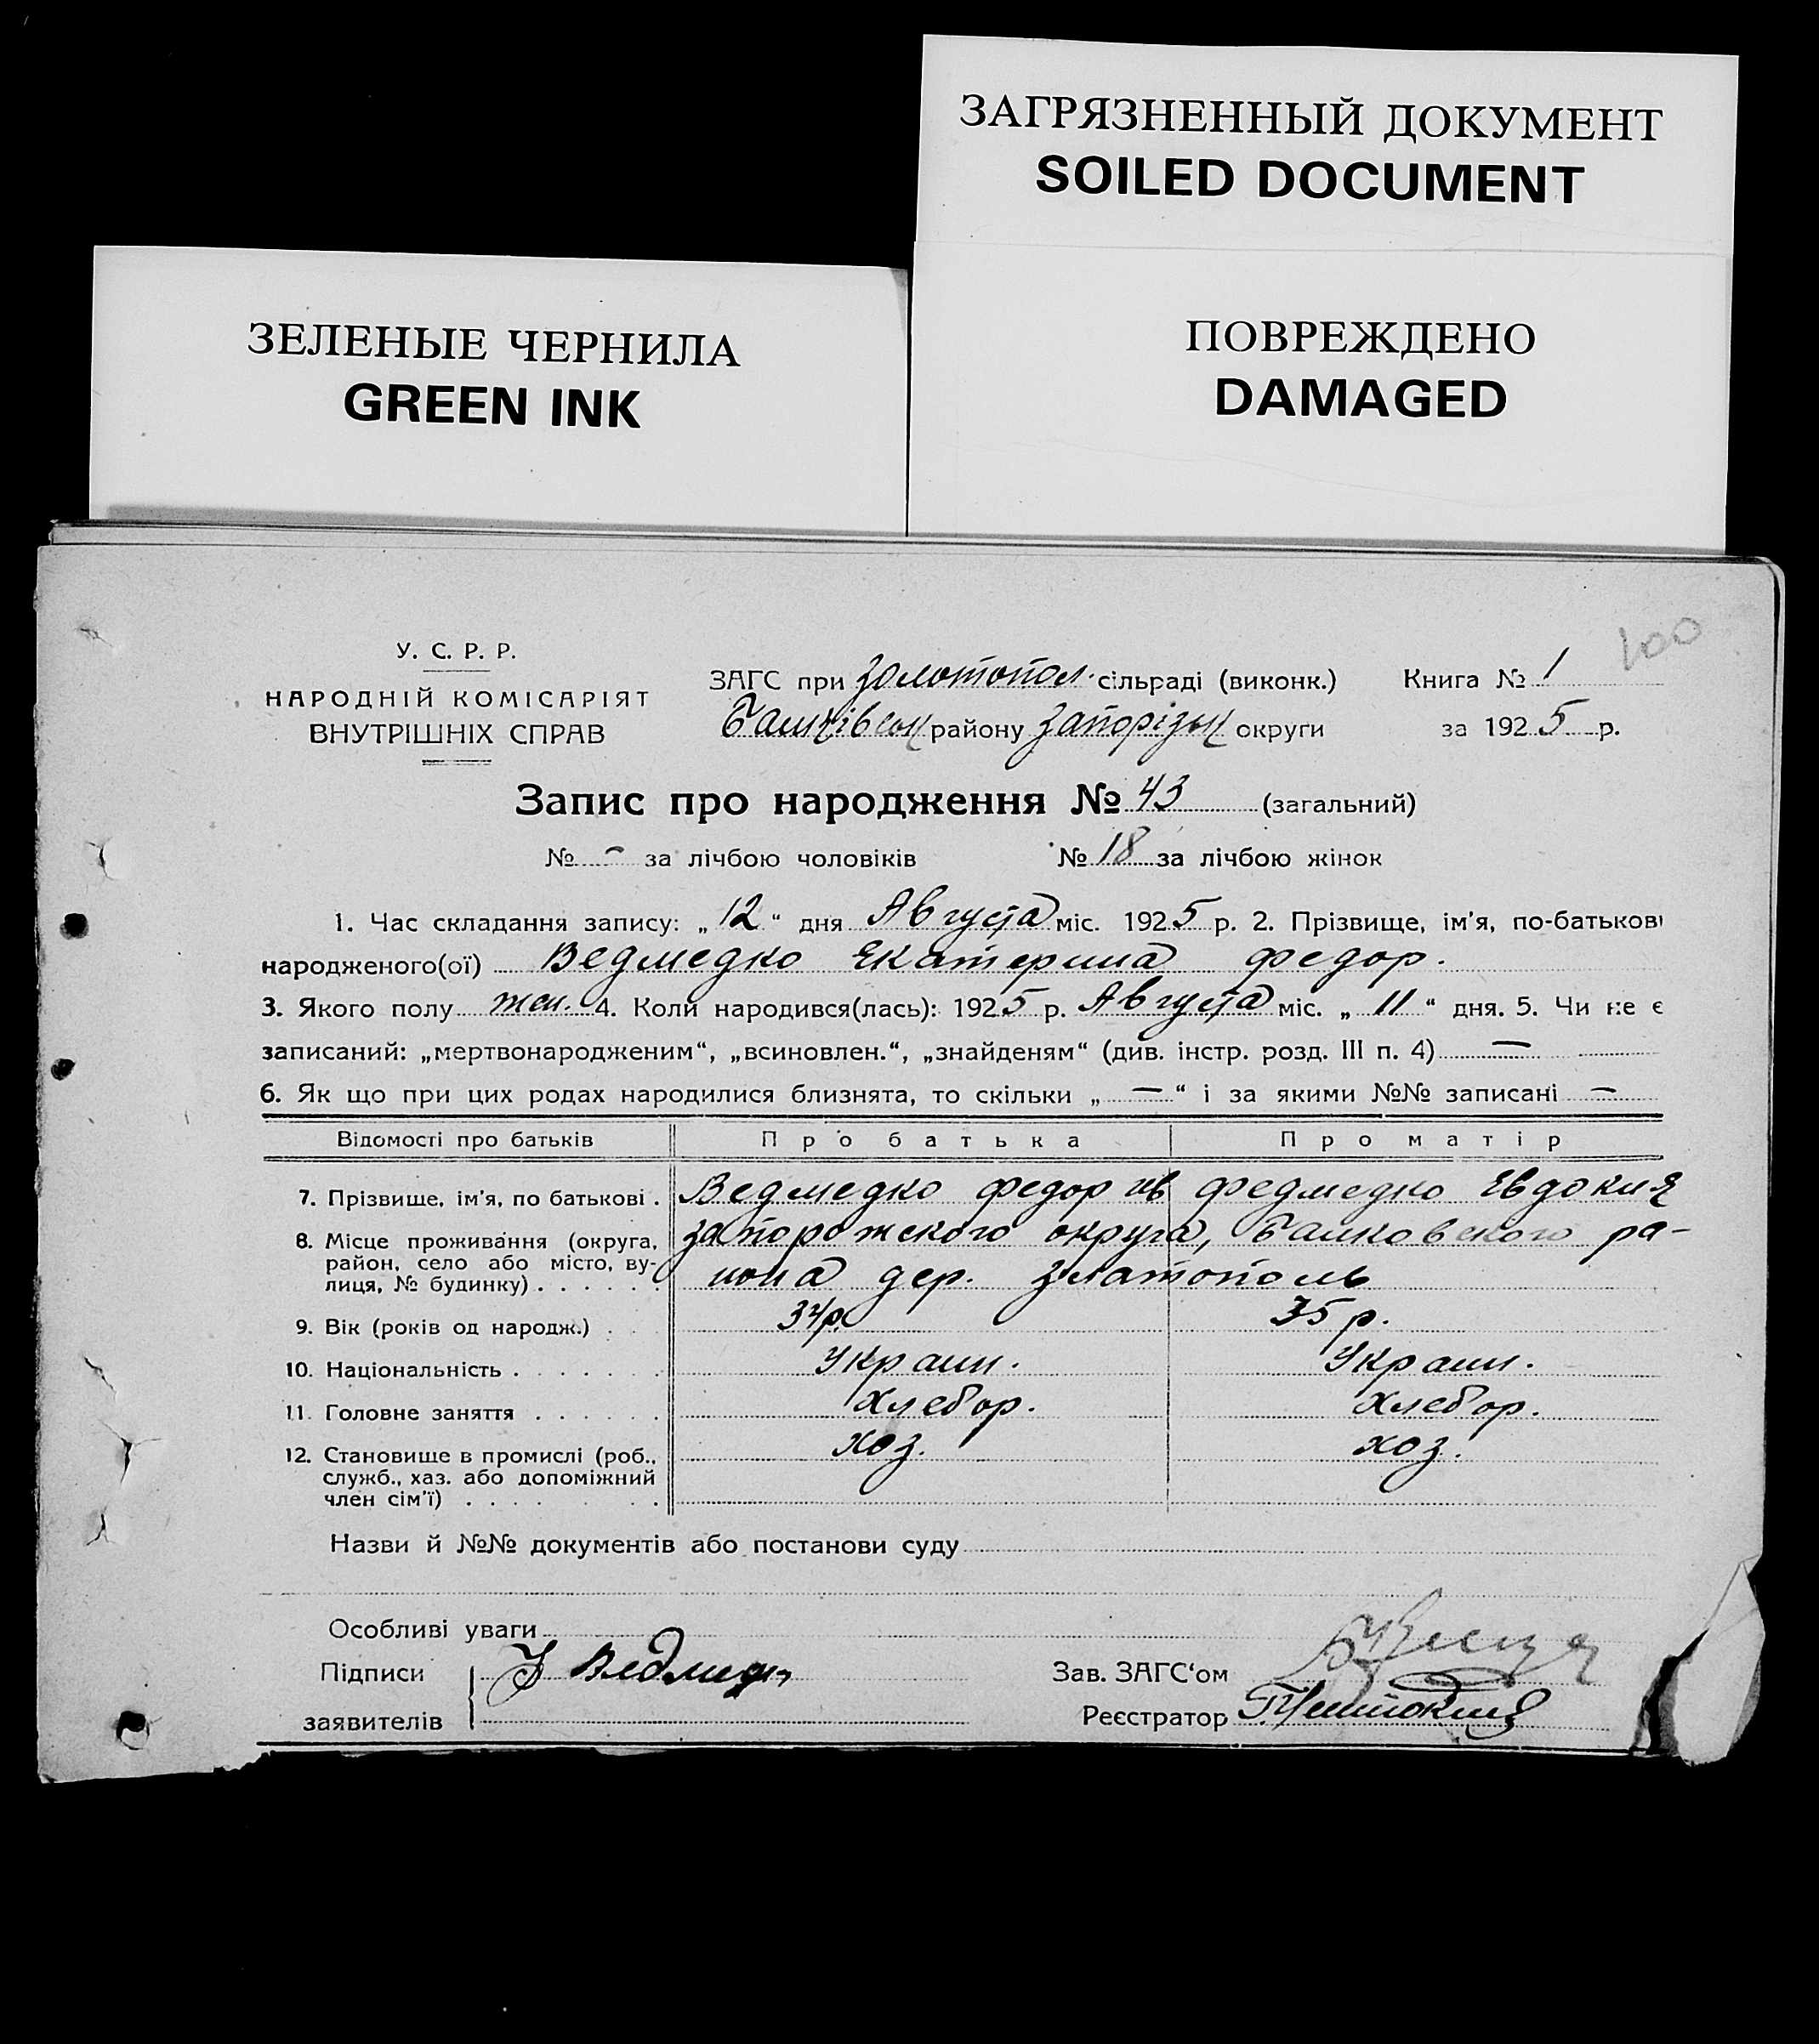 ЗАГРЯЗНЕННЫЙ ДОКУМЕНТ
SOILED DOCUMENT
ЗЕЛЕНЫЕ ЧЕРНИЛА
GREEN INK
ПОВРЕЖДЕНО
DAMAGED
100
У. С. Р. Р.
НАРОДНІЙ КОМІСАРІЯТ
ВНУТРІШНІХ СПРАВ
ЗАГС при Золотопол. сільраді (виконк.) Книга № 1
району Запорізьк округи за 1925 р.
Запис про народження № 43 (загальний)
№ - за лічбою чоловіків № 18 за лічбою жінок
1. Час складання запису: „12“ дня Августа міс. 1925 р. 2. Прізвище, ім'я, по-батькові
народженого(ої) Ведмедко Екатерина Федор.
3. Якого полу жен. 4. Коли народився(лась): 1925 р. Августа міс. „11“ дня. 5. Чи не є
записаний: „мертвонародженим“, „всиновлен.“, „знайденям“ (див. інстр. розд. III п. 4) —
6. Як що при цих родах народилися близнята, то скільки „—“ і за якими №№ записані —
Відомості про батьків Про батька Про матір
7. Прізвище, ім'я, по батькові . Ведмедко Федор Ив Федмедко Евдокия
8. Місце проживання (округа, район, село або місто, вулиця, № будинку) . . . . . . Запорожского округа, Балковского ра-
иона дер. Златополь
9. Вік (років од народж.) . . . 34 р. 35 р.
10. Національність . . . . . . . Украин. Украин.
11. Головне заняття . . . . . . Хлебор. Хлебор.
12. Становище в промислі (роб., хоз. хоз.
служб., хаз. або допоміжний
член сім'ї) . . . . . . .
Назви й №№ документів або постанови суду
Особливі уваги
Підписи
заявителів
Зав. ЗАГС'ом
Реєстратор